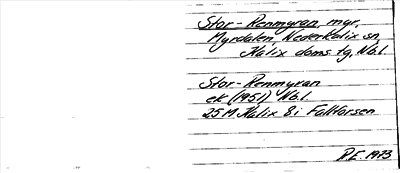 Stor-Renmyran, myr,
Myrdalen, Nederkalix sn,
Kalix doms. tg, Nb.l.
Stor-Renmyran
ek (1951) Nb.l.
25M Kalix 8i Fällforsen
P.E. 1973